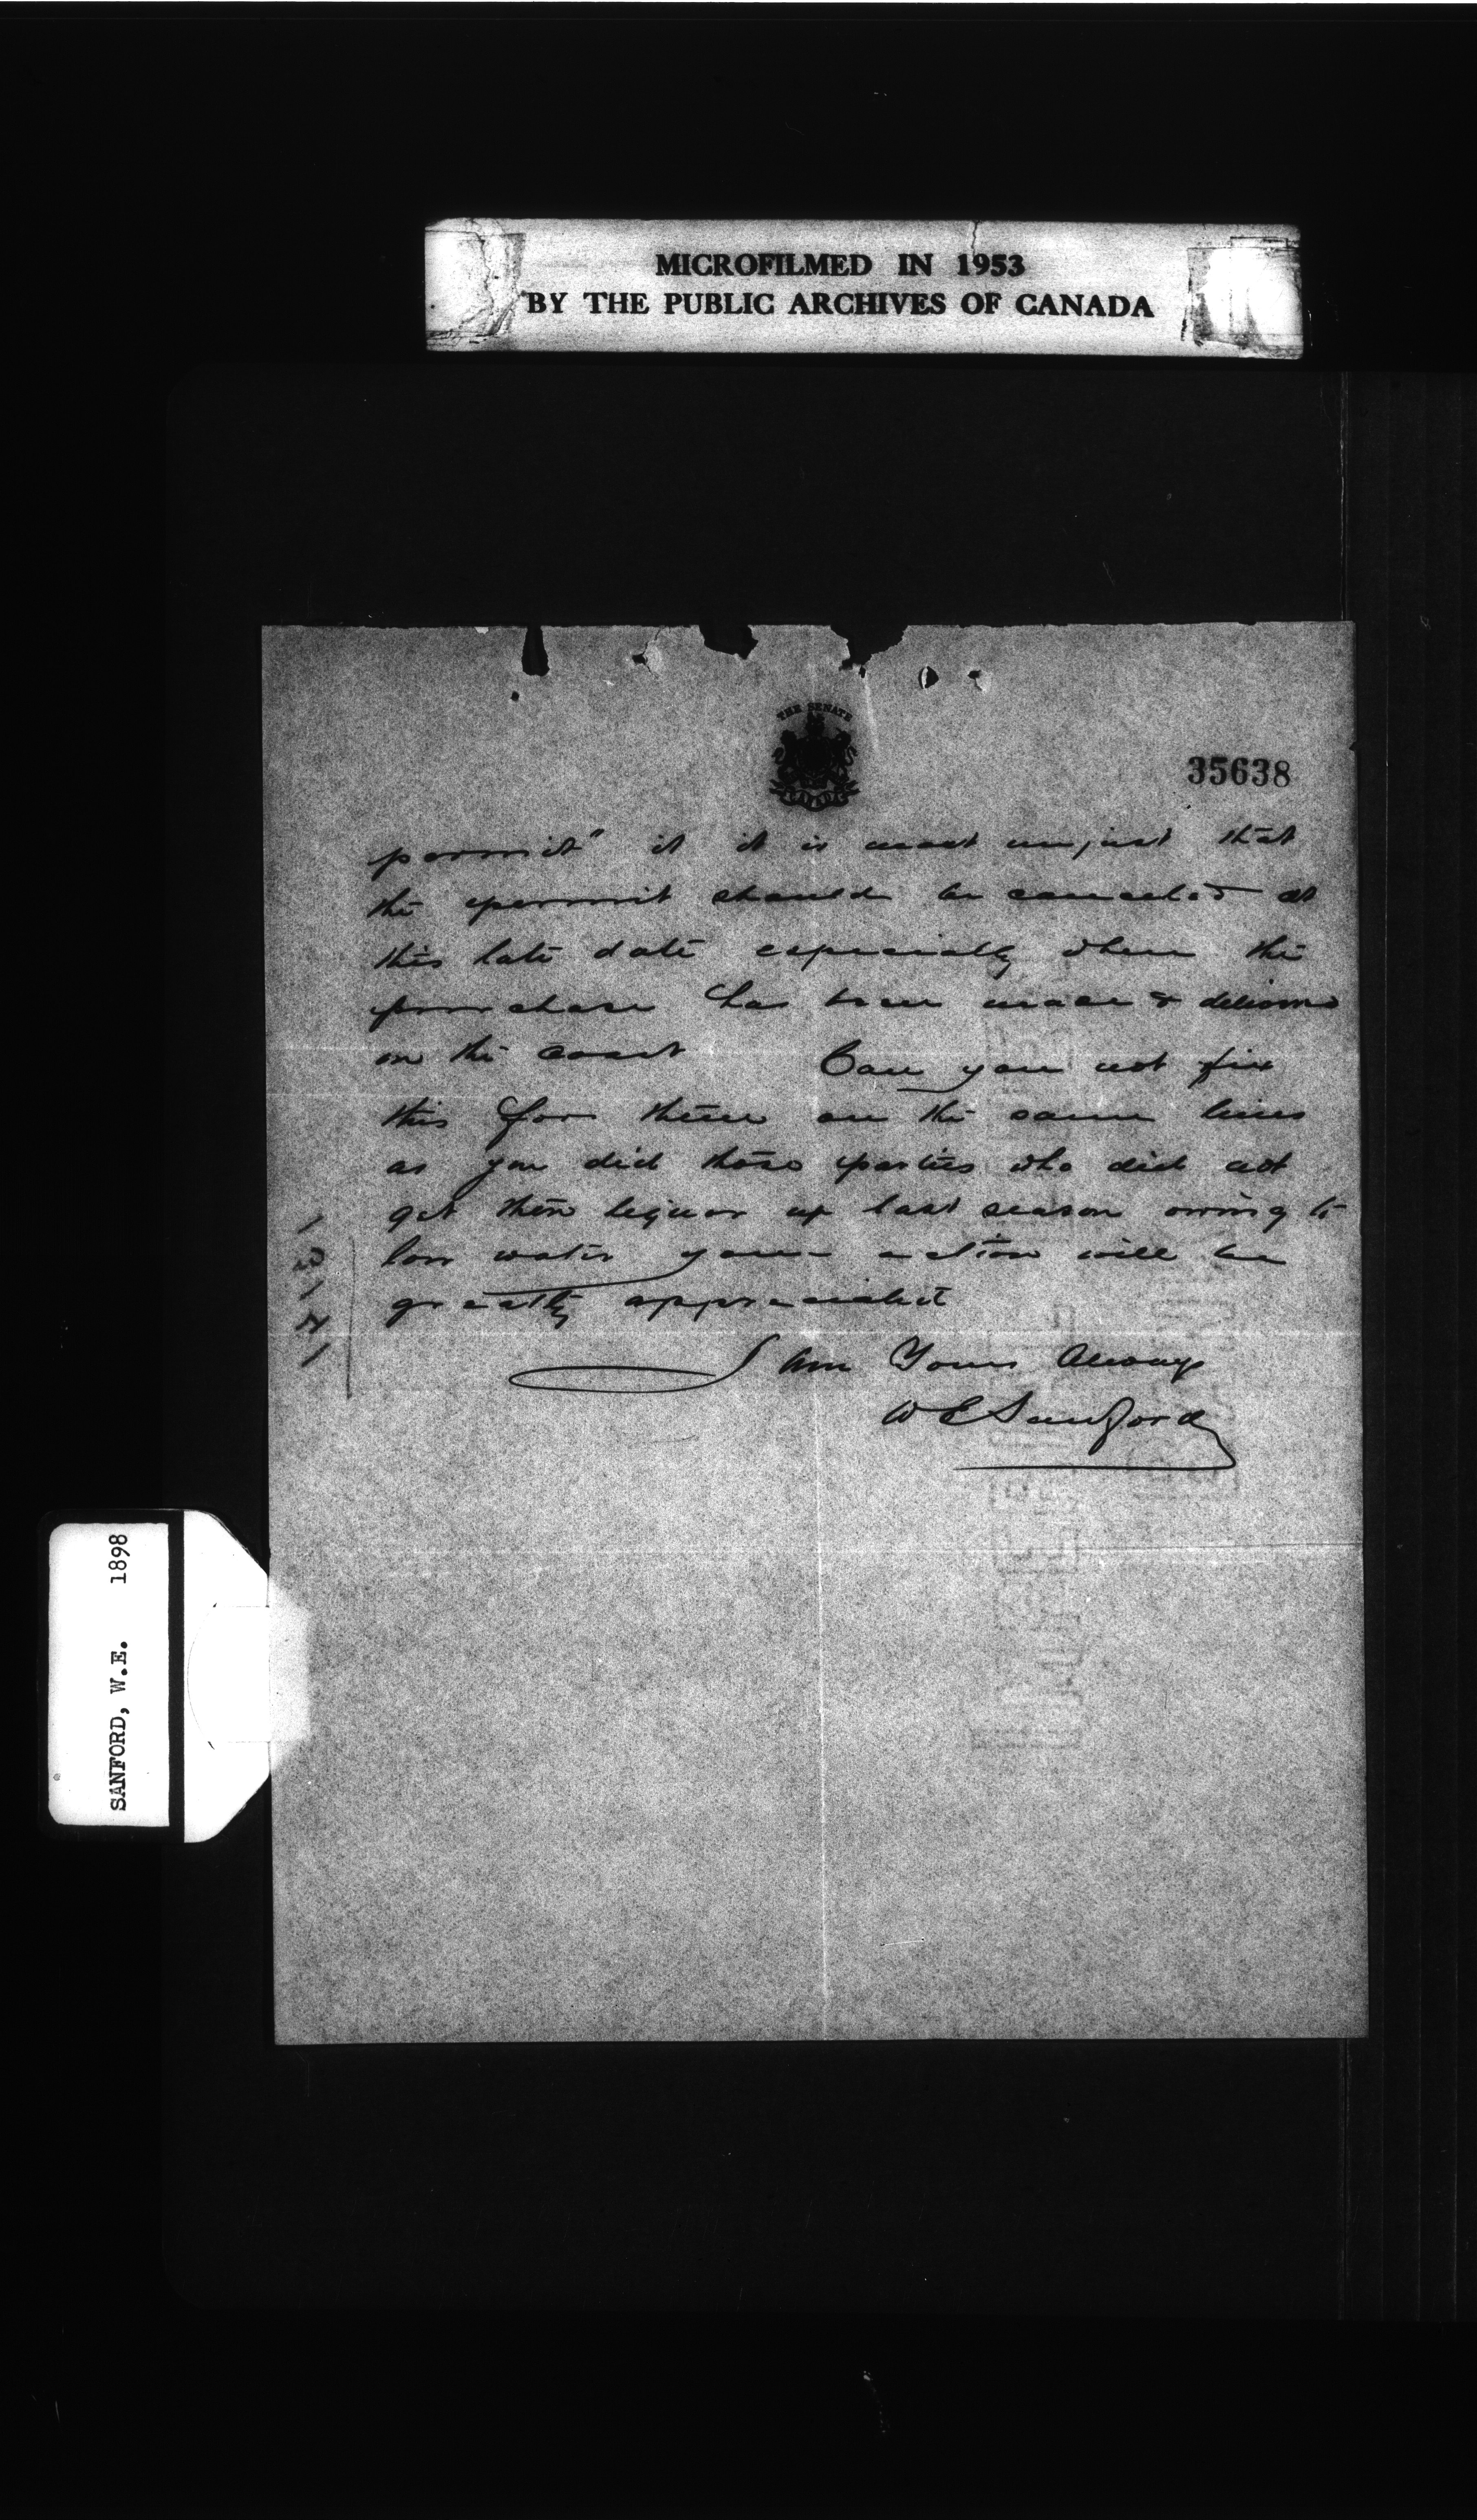 MICROFILMED IN 1953
BY THE PUBLIC ARCHIVES OF CANADA
THE SENATE
CANADA
35638
permit" it it is most unjust that
the permit should be canceled at
this late date especially when the
purchase has been made &
on the coast Can you not fix
this for them on the same lines
as you did those parties who did not
get their liquor up last season owing to
low water your action will be
greatly appreciated
I am Yours Always
W E Sanford
SANFORD, W.E. 1898